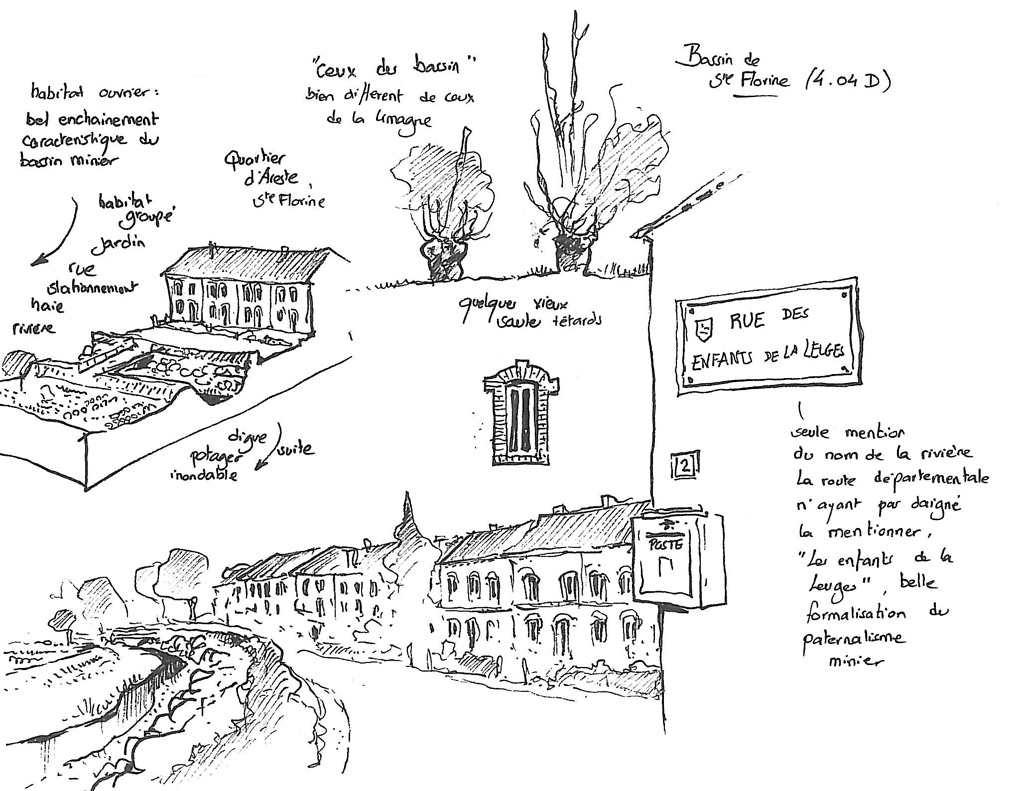 Bassin de
Ste Florine (4.04 D)
"Ceux du bassin"
bien différent de ceux
de la Limagne
habitat ouvrier :
bel enchainement
caractéristique du
bassin minier
Quartier
d'Areste,
Ste Florine
habitat
groupé
jardin
rue
stationnement
haie
rivière
quelques vieux
saule tétards
RUE DES
ENFANTS DE LA LEUGES
digue
potager
inondable
suite
2
POSTE
seule mention
du nom de la rivière
La route départementale
n'ayant pas daigné
la mentionner,
"Les enfants de la
Leuges", belle
formalisation du
paternalisme
minier